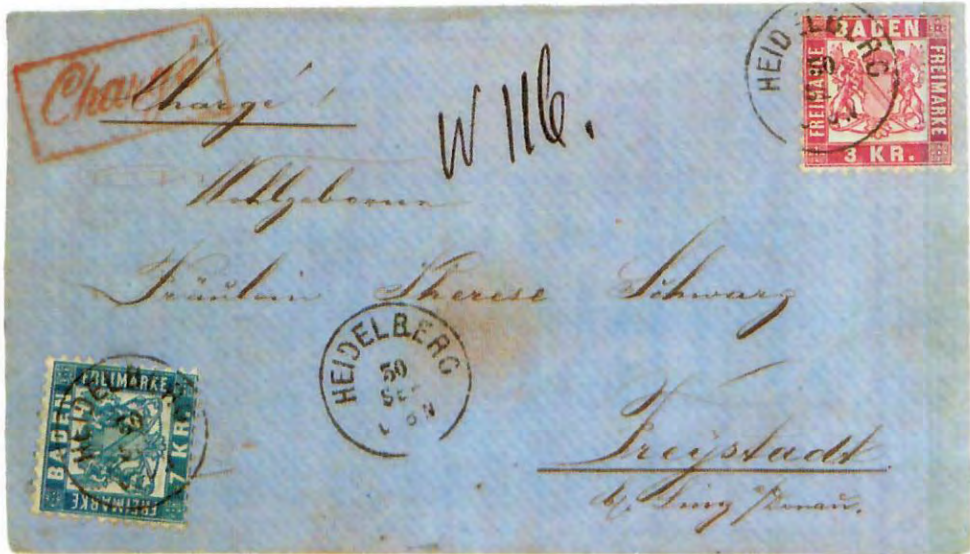 Chargé
Chargé!
W 116.
HEIDELBERG
30
BADEN
FREIMARKE
FREIMARKE
3 KR.
Wohlgeboren
Fräulein Therese Schwarz
HEIDELBERG
30
SEP
6 N
HEIDELBERG
30
FREIMARKE
BADEN
7 KR.
FREIMARKE
Freystadt
Donau.